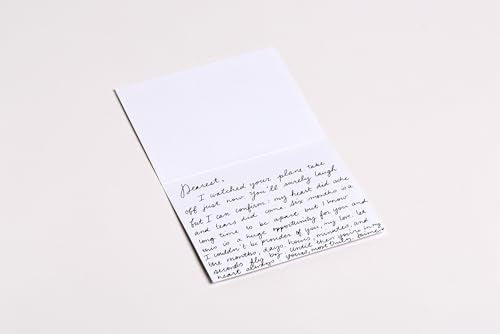 Dearest,
I watched your plane take
off just now. You'll surely laugh
but I can confirm: my heart did ache
and tears did come. six months is a
long time to be apart but I know
this is a huge opportunity for you and
I couldn't be prouder of you, my love. let
the months, days, hours, minutes, and
seconds fly by. Until then you're in my
heart always. Yours, most truly,